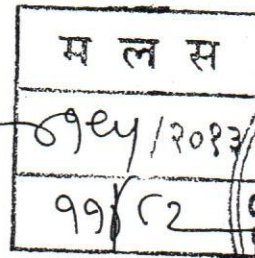 म ल स
७९५/२०१३
११/८२